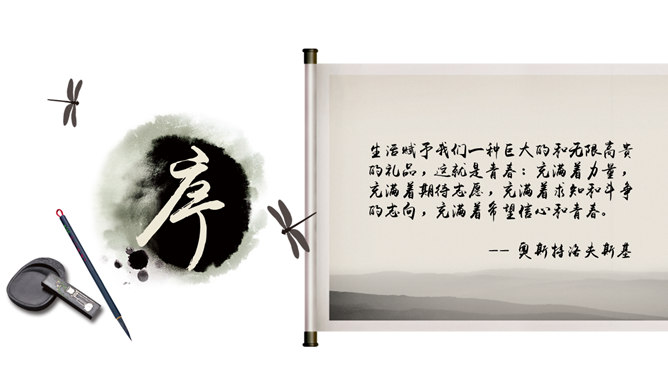 序
生活赋予我们一种巨大的和无限高贵
的礼品，这就是青春：充满着力量，
充满着期待志愿，充满着求知和斗争
的志向，充满着希望信心和青春。
-- 奥斯特洛夫斯基